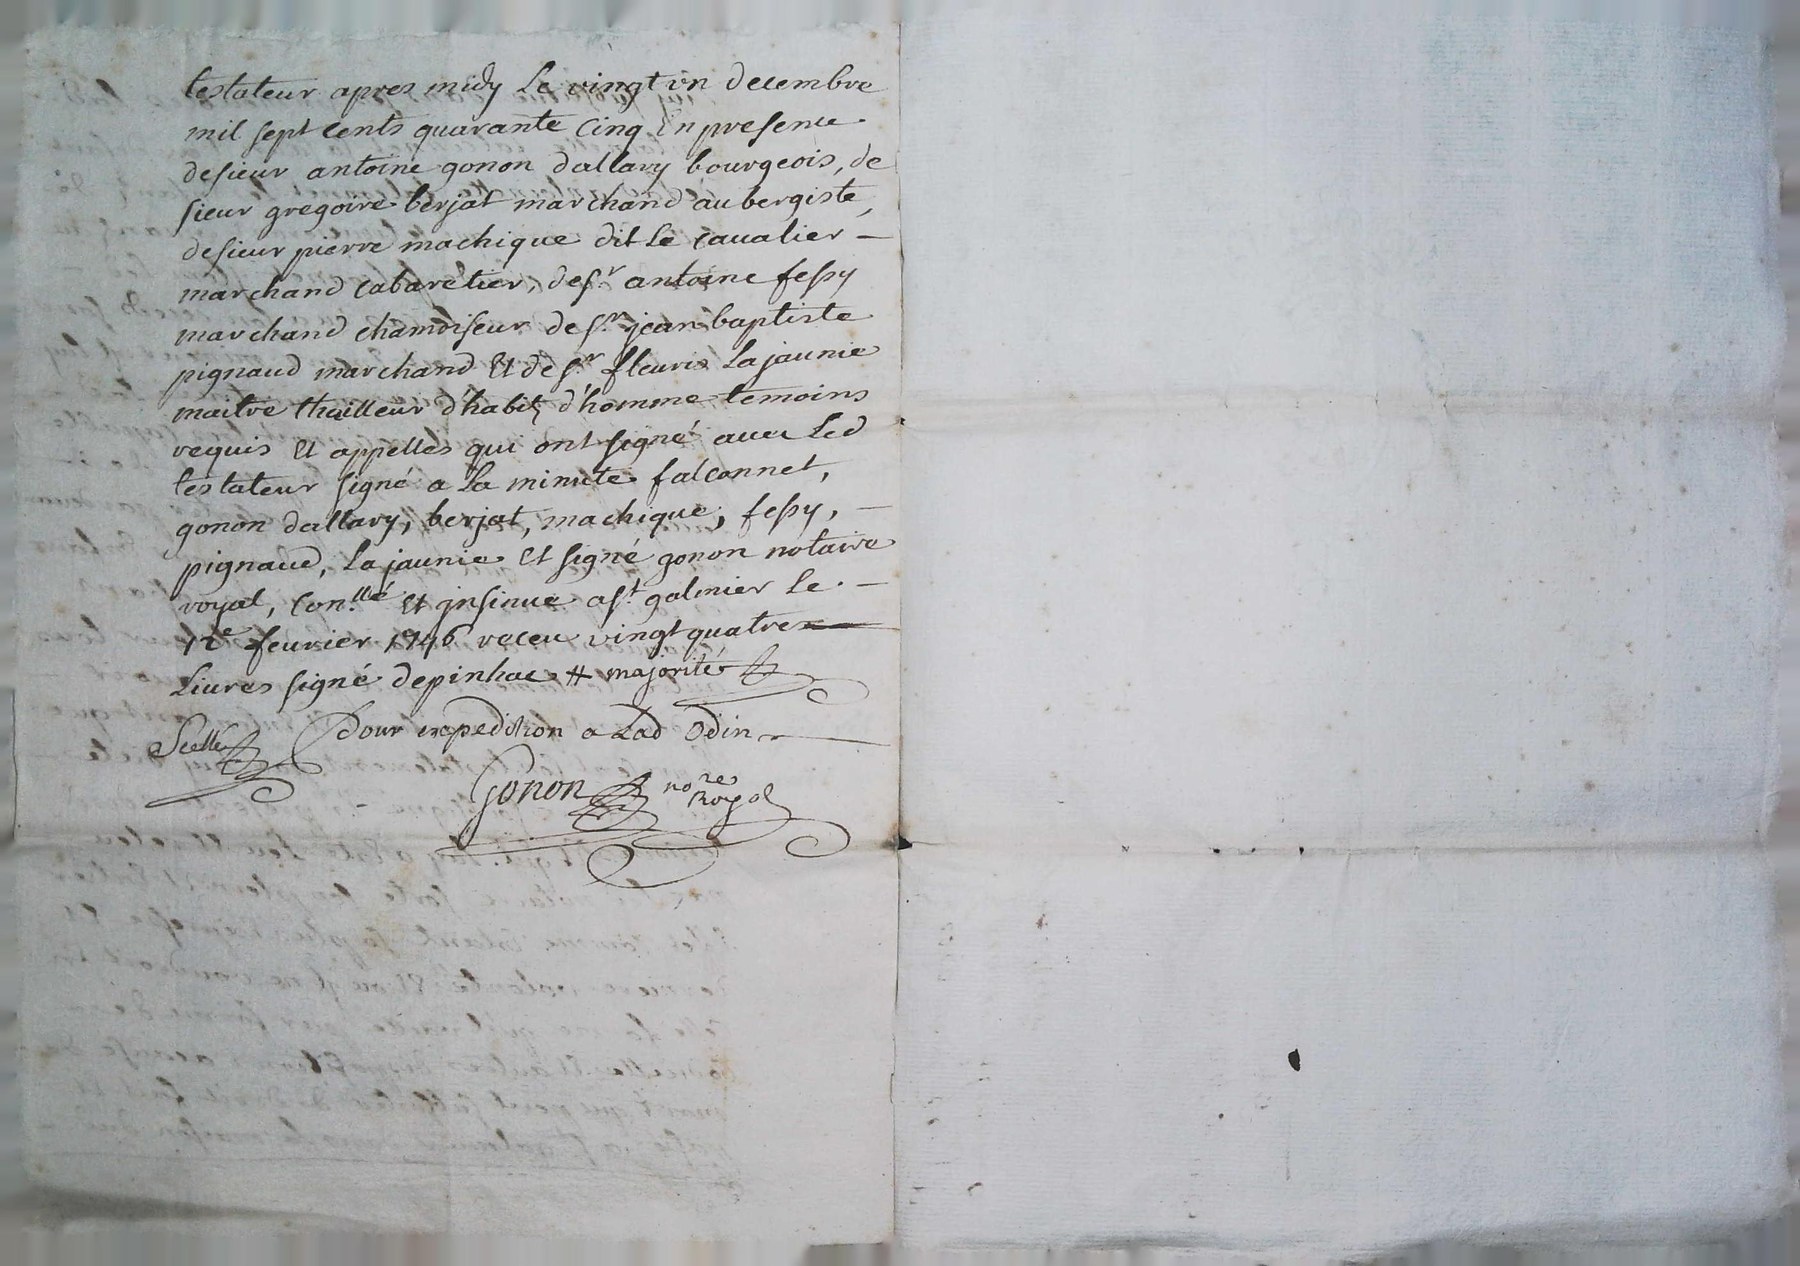 testateur apres midy Le vingt un decembre
mil sept cents quarante cinq En presence
de sieur antoine gonon dallary bourgeois, de
sieur gregoire berjat marchand aubergiste,
de sieur pierre machique dit Le Cavalier —
marchand cabaretier, de sr. antoine fessy
marchand chamoiseur de sr. jean baptiste
pignaud marchand Et de sr. fleurie Lajaunie
maitre thailleur d'habits d'homme temoins
requis Et appelles qui ont signé avec Led
testateur signé a La minute falconnet,
gonon dallary, berjat, machique, fessy, —
pignaud, Lajaunie Et signé gonon notaire
royal, Con.llé Et insinue a st. galmier Le. —
12e fevrier 1746 receu vingt quatre —
Livres signé depinhac # majorité
Scellé Pour expedition a Lad Odin —
Gonon nore Royal